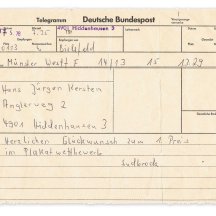 Telegramm Deutsche Bundespost
4901 Hiddenhausen 3
Bielefeld
Münster Westf F 14/13 15 13.29
Hans Jürgen Kersten
Anglerweg 2
4901 Hiddenhausen 3
Herzlichen Glückwunsch zum 1. Preis
im Plakatwettbewerb
Sudbrock